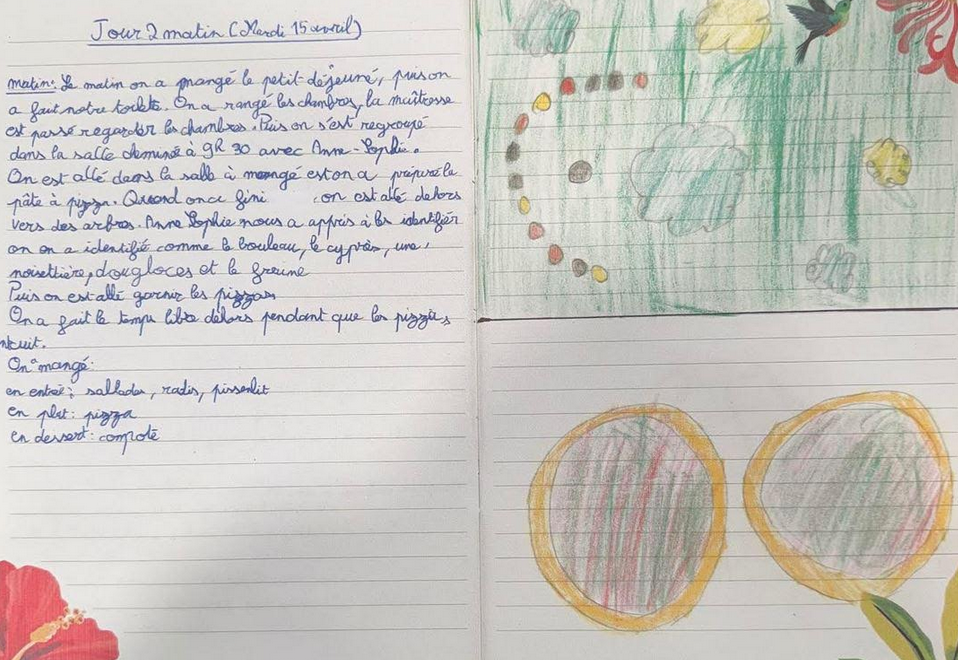 Jour 2 matin (Mardi 15 avril)
matin: Le matin on a mangé le petit-déjeuné, puis on
a fait notre toilets. On a rangé les chambres, la maîtresse
est passé regarder les chambres. Puis on s'est regroupé
dans la salle cheminé à 9h 30 avec Anne-Sophie.
On est allé dans la salle à mangé est on a préparé la
pâte à pizza. Quand on ce fini on est allé dehors
vers des arbres. Anne Sophie nous a appris à les identifiér
on on a identifié comme le bouleau, le cyprès, une
noisettière, dougloces et le freine
Puis on est allé garnir les pizzas
On a fait le temps libre dehors pendant que les pizzas
cuit.
On a mangé:
en entrée: sallades, radis, pissenlit
en plat: pizza
en dessert: compoté